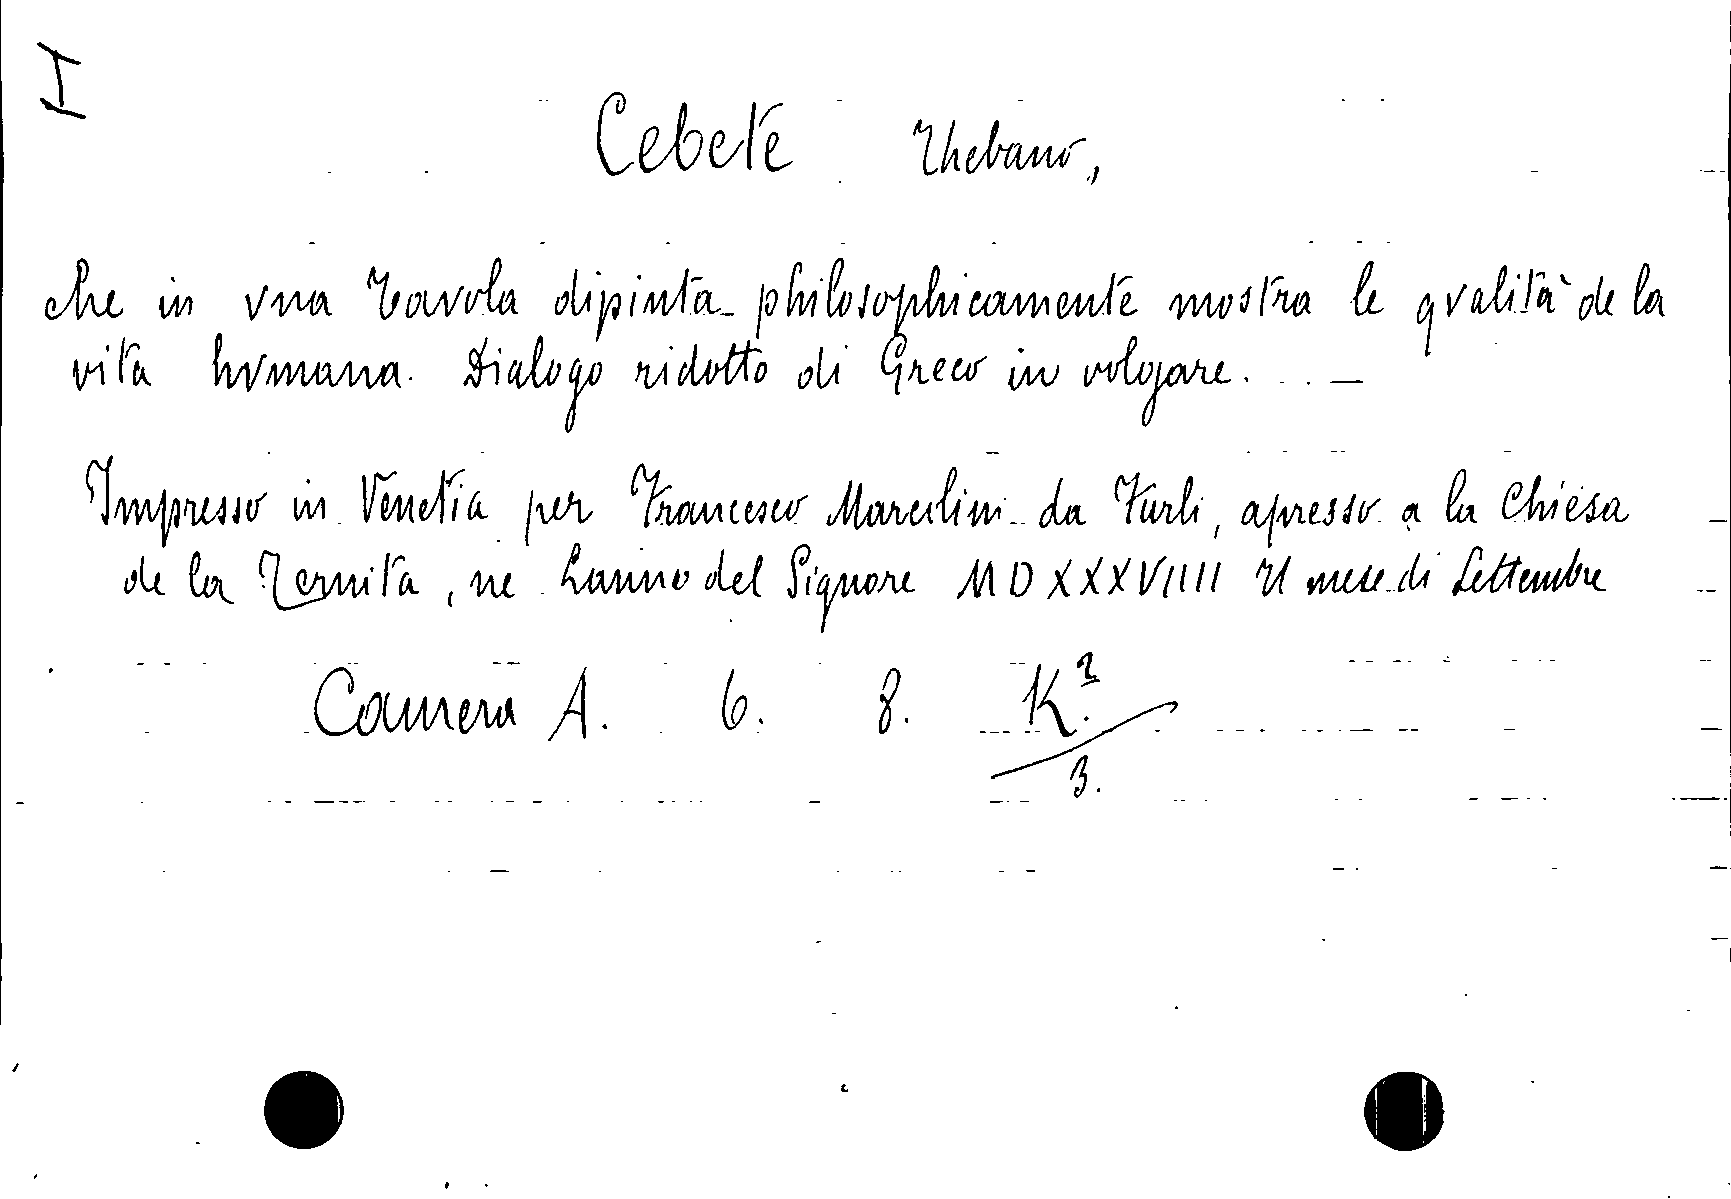 I
Cebete Thebano,
che in vna tavola dipinta philosophicamente mostra le qvalità de la
vita hvmana. Dialogo ridotto di Greco in vologare.
Impresso in Venetia per Francesco Marcilini da Furli, apresso a la Chiesa
de la Ternita, ne Lanno del Signore MDXXXVIIII Il mese di Settembre
Camera A. 6. 8. K.²
3.